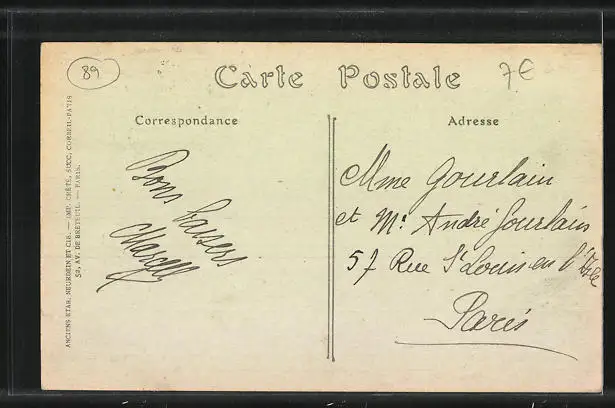 89
Carte Postale
7€
Correspondance
Adresse
Bons baisers
Marcelle
Mme Gourlain
et Mr André Jourlain
57 Rue St Louis en l'Isle
Paris
ANCIENS ETAB. NEURDEIN ET CIE. — IMP. CRÉTÉ, SUCC. CORBEIL-PARIS
52, AV. DE BRETEUIL. — PARIS.